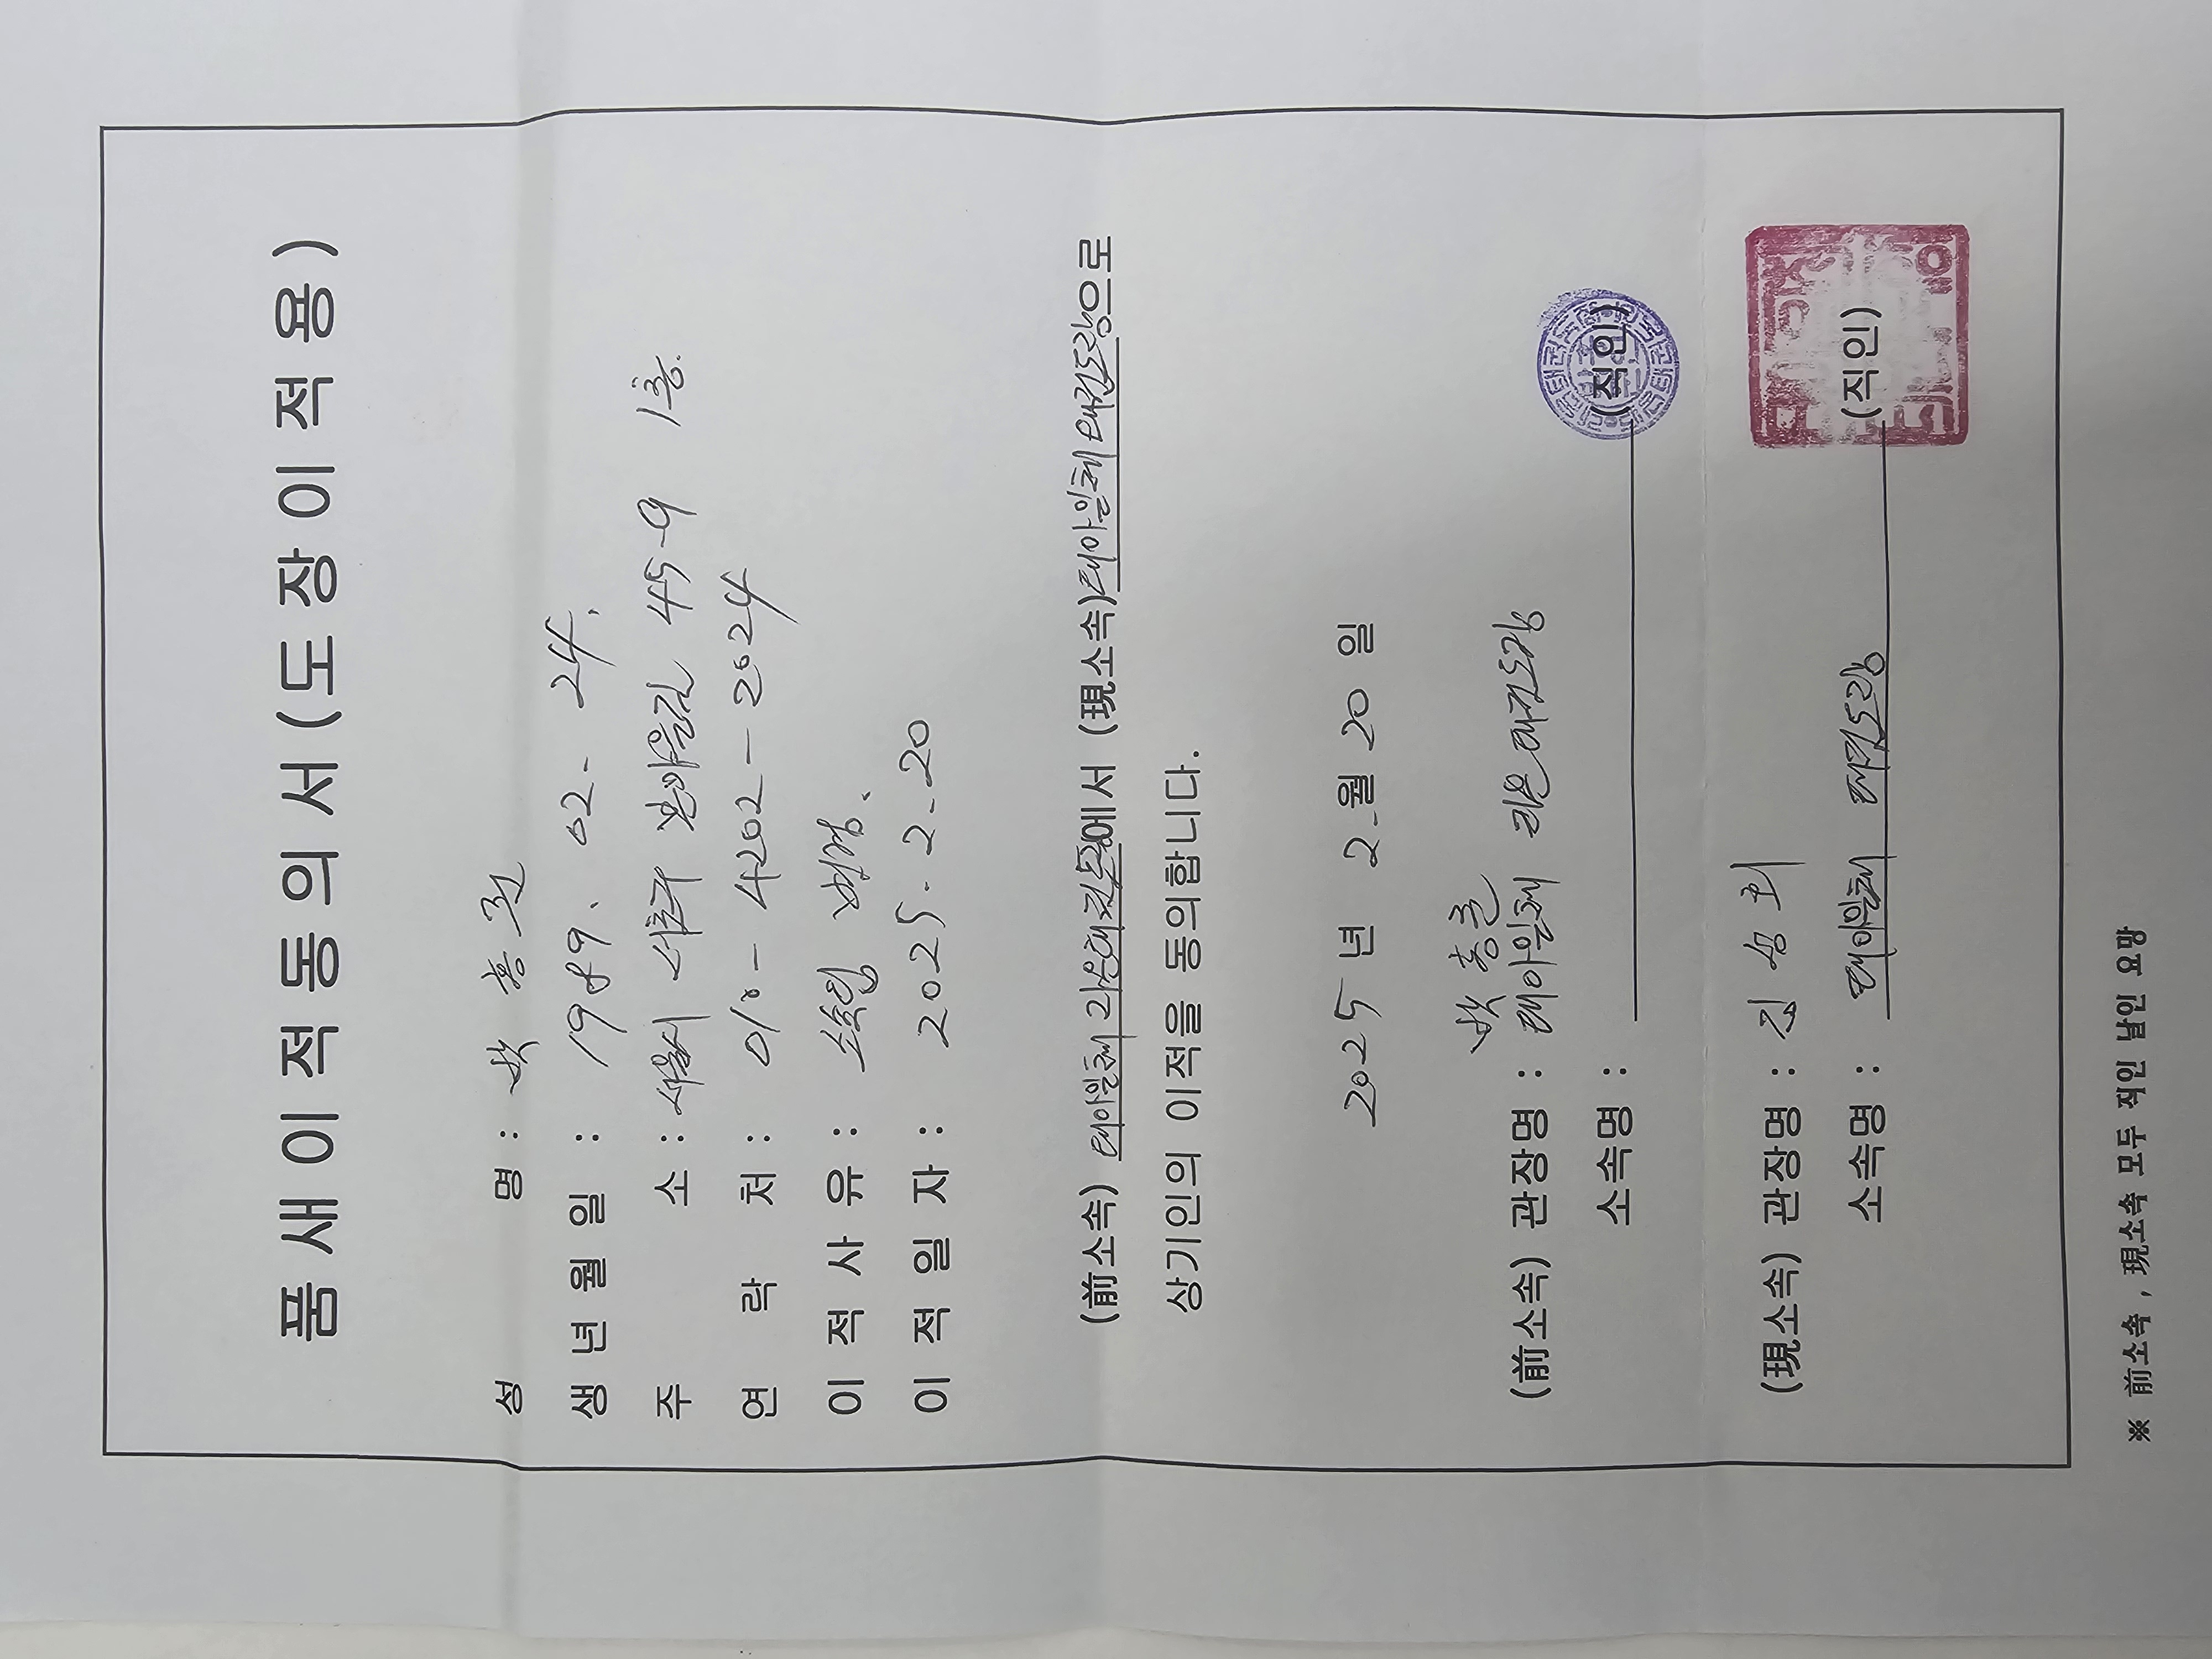 품새이적동의서(도장이적용)
성 명 : 박 홍
생 년 월 일 : 1989. 02- 24.
주 소 : 서울시 서초구 45-9 1층.
연 락 처 : 010- 4202- 2024
이 적 사 유 : 소속팀 변경.
이 적 일 자 : 2025. 2. 20
(前소속) 태아일체 에서 (現소속) 태아일체 태권도장으로
상기인의 이적을 동의합니다.
2025 년 2. 월 20 일
박 홍
(前소속) 관장명 : 태아일체 리온 태권도장
소속명 : (직인)
(現소속) 관장명 : 김 성
소속명 : 태아일체 태권도장 (직인)
※ 前소속, 現소속 모두 직인 날인 요망